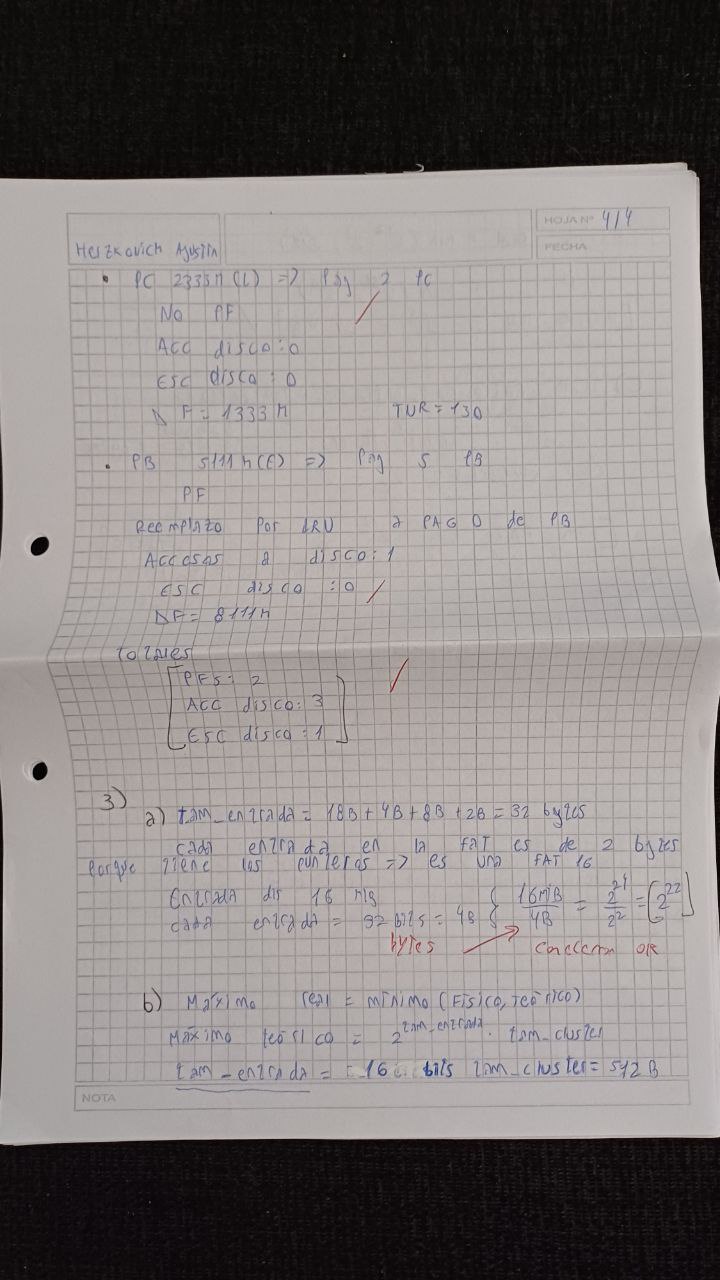 HOJA Nº 4/4
Herzkovich Agustín
FECHA
• PC 2333H (L) => Pág 2 PC
No PF
ACC disco: 0
ESC disco: 0
DF = 1333H TUR = 130
• PB 5111H (E) => Pág 5 PB
PF
Reemplazo por LRU a PAG 0 de PB
Accesos a disco: 1
ESC disco: 0
DF = 8111H
Totales
PFs: 2
ACC disco: 3
ESC disco: 1
3)
a) tam_entrada = 18B + 4B + 8B + 2B = 32 bytes
cada entrada en la FAT es de 2 bytes
porque tiene los punteros => es una FAT 16
Entrada dir 16 MiB
cada entrada = 32 bits = 4B { 16MiB/4B = 2^24/2^2 = [2^22]
bytes concepto OK
b) Máximo real = mínimo (Físico, teórico)
Máximo teórico = 2^tam_entrada . tam_cluster
tam_entrada = 16 bits tam_cluster = 512 B
NOTA